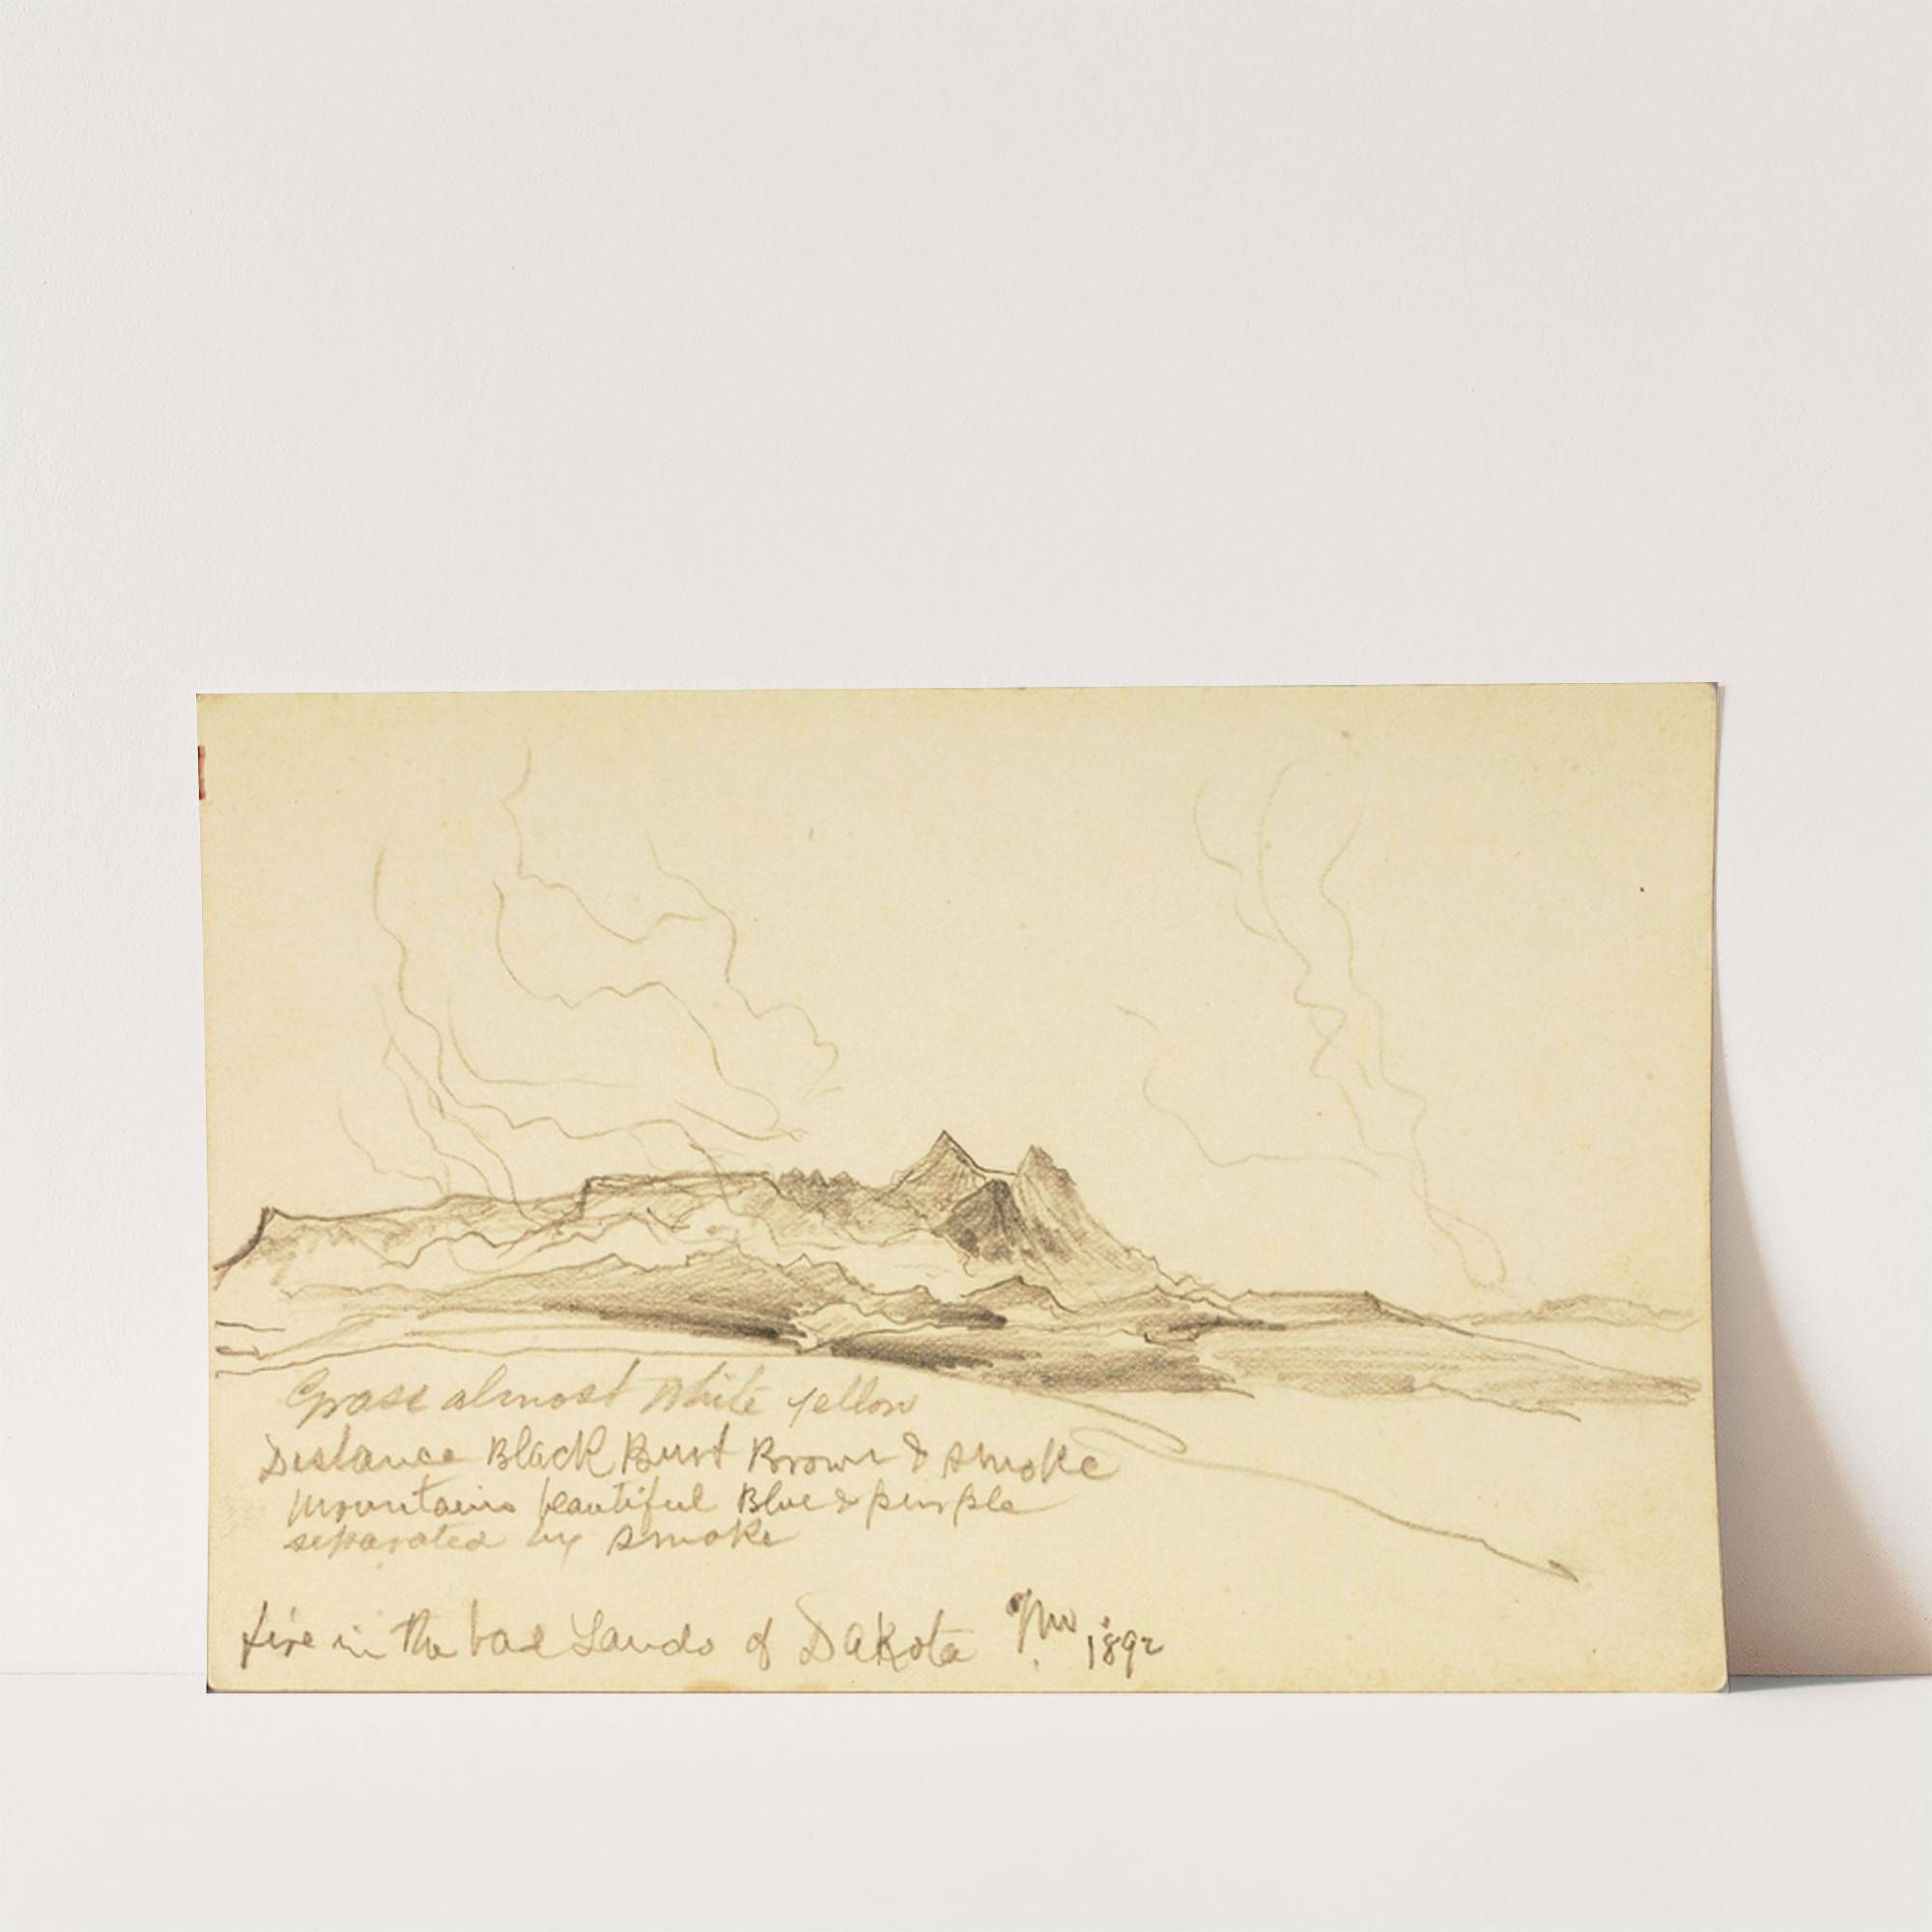 Grass almost White yellow
Distance Black Burst Brown & smoke
Mountains beautiful Blue & purple
separated by smoke
fire in the bad Lands of Dakota
1892